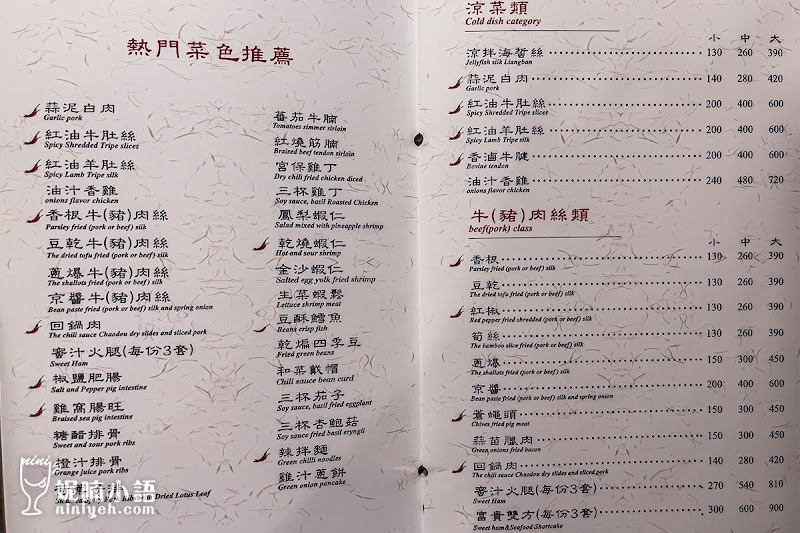 熱門菜色推薦
蒜泥白肉
Garlic pork
紅油牛肚絲
Spicy Shredded Tripe slices
紅油羊肚絲
Spicy Lamb Tripe silk
油汁香雞
onions flavor chicken
香根牛(豬)肉絲
Parsley fried (pork or beef) silk
豆乾牛(豬)肉絲
The dried tofu fried (pork or beef) silk
蔥爆牛(豬)肉絲
The shallots fried (pork or beef) silk
京醬牛(豬)肉絲
Bean paste fried (pork or beef) silk and spring onion
回鍋肉
The chili sauce Chaodou dry slides and sliced pork
蜜汁火腿(每份3套)
Sweet Ham
椒鹽肥腸
Salt and Pepper pig intestine
雞窩腸旺
Braised sea pig intestine
糖醋排骨
Sweet and sour pork ribs
橙汁排骨
Orange juice pork ribs
Dried Lotus Leaf
蕃茄牛腩
Tomatoes simmer sirloin
紅燒筋腩
Braised beef tendon sirloin
宮保雞丁
Dry chili fried chicken diced
三杯雞丁
Soy sauce, basil Roasted Chicken
鳳梨蝦仁
Salad mixed with pineapple shrimp
乾燒蝦仁
Hot and sour shrimp
金沙蝦仁
Salted egg yolk fried shrimp
生菜蝦鬆
Lettuce shrimp meat
豆酥鱈魚
Beans crisp fish
乾煸四季豆
Fried green beans
和菜戴帽
Chili sauce bean curd
三杯茄子
Soy sauce, basil fried eggplant
三杯杏鮑菇
Soy sauce fried basil eryngii
辣拌麵
Green chilli noodles
雞汁蔥餅
Green onion pancake
涼菜類
Cold dish category
小 中 大
涼拌海蜇絲 130 260 390
Jellyfish silk Liangban
蒜泥白肉 140 280 420
Garlic pork
紅油牛肚絲 200 400 600
Spicy Shredded Tripe slices
紅油羊肚絲 200 400 600
Spicy Lamb Tripe silk
香滷牛腱 200 400 600
Bovine tendon
油汁香雞 240 480 720
onions flavor chicken
牛(豬)肉絲類
beef(pork) class
小 中 大
香根 130 260 390
Parsley fried (pork or beef) silk
豆乾 130 260 390
The dried tofu fried (pork or beef) silk
紅椒 130 260 390
Red pepper fried shredded (pork or beef) silk
筍絲 130 260 390
The bamboo slice fried (pork or beef) silk
蔥爆 150 300 450
The shallots fried (pork or beef) silk
京醬 200 400 600
Bean paste fried (pork or beef) silk and spring onion
蒼蠅頭 150 300 450
Chives fried pig meat
蒜苗臘肉 150 300 450
Green onions fried bacon
回鍋肉 140 280 420
The chili sauce Chaodou dry slides and sliced pork
蜜汁火腿(每份3套) 270 540 810
Sweet Ham
富貴雙方(每份3套) 300 600 900
Sweet ham&Seafood Shortcake
nini
妮喃小語
niniyeh.com